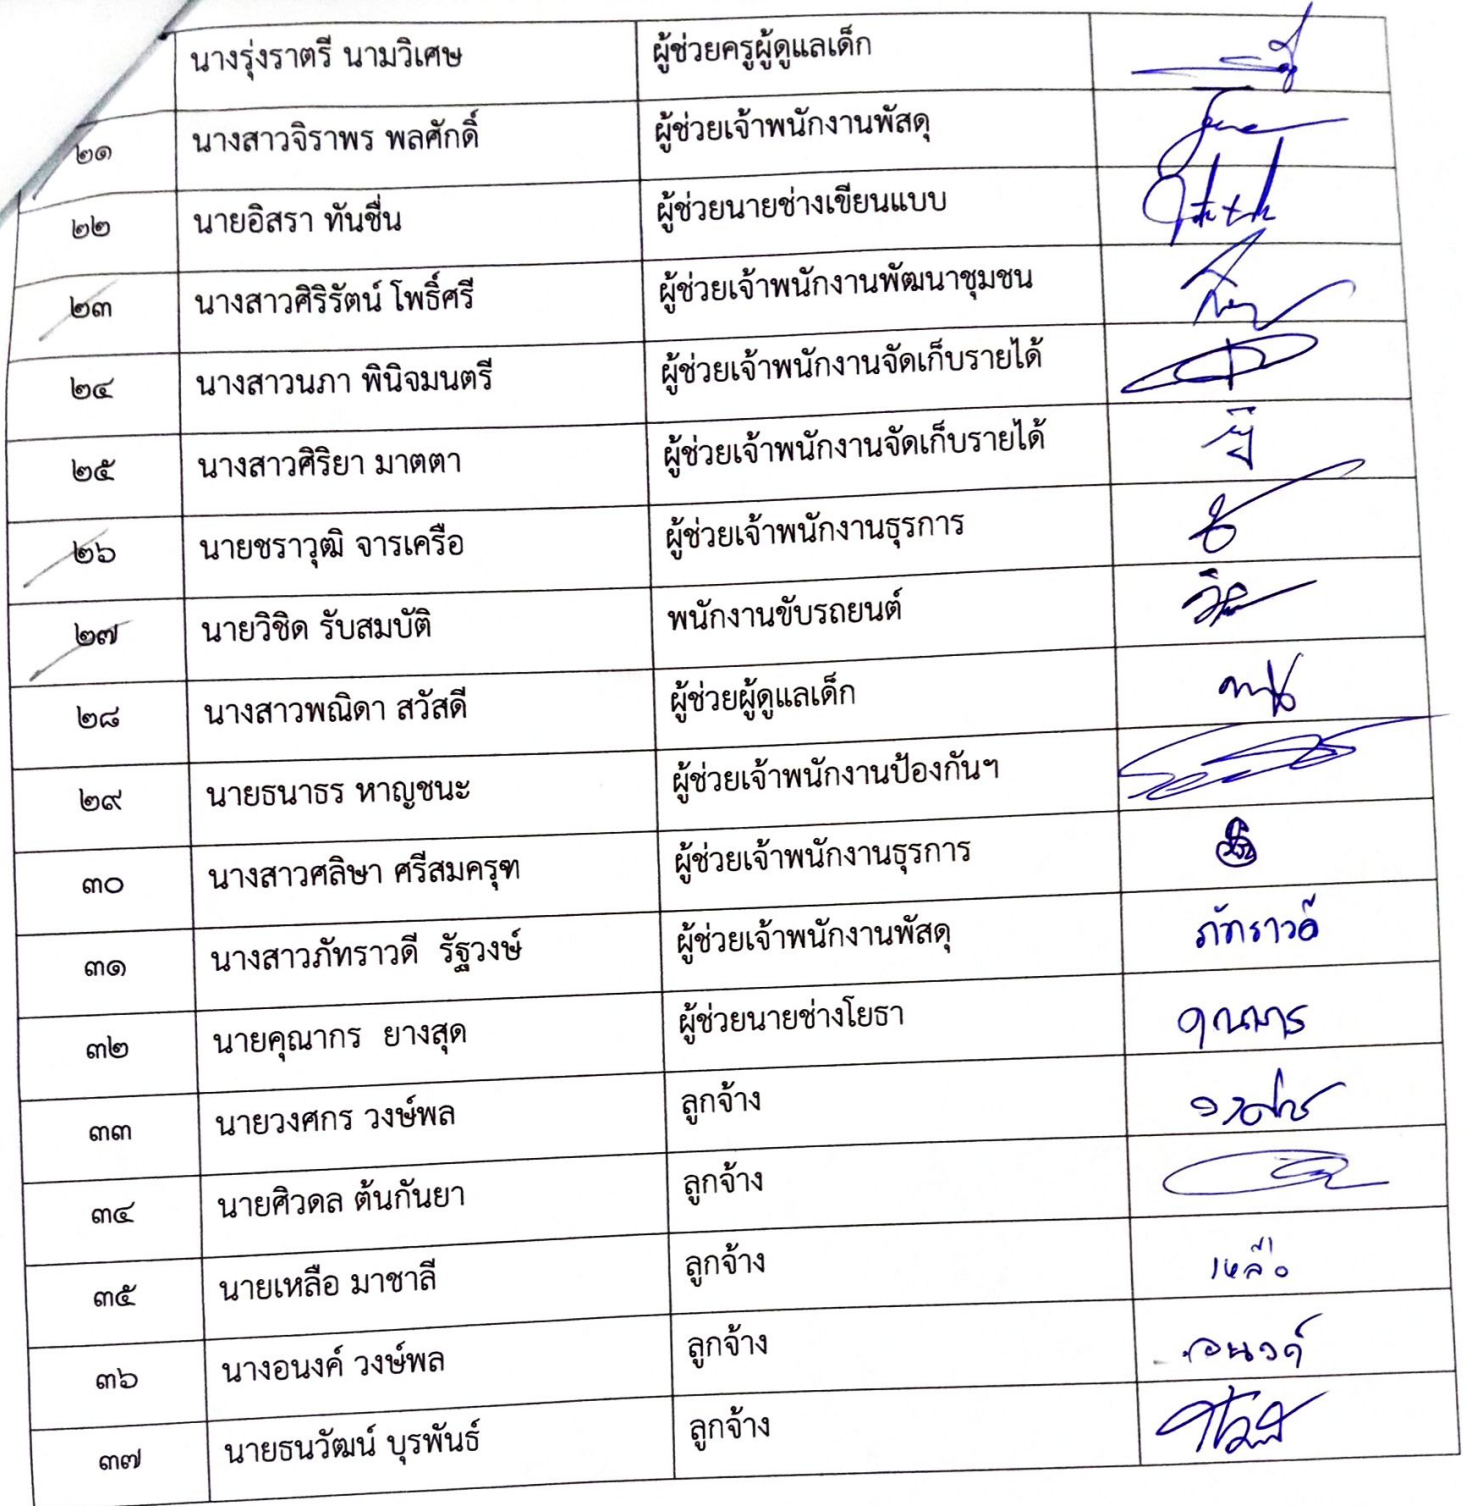 นางรุ่งราตรี นามวิเศษ ผู้ช่วยครูผู้ดูแลเด็ก
๒๑ นางสาวจิราพร พลศักดิ์ ผู้ช่วยเจ้าพนักงานพัสดุ
๒๒ นายอิสรา ทันชื่น ผู้ช่วยนายช่างเขียนแบบ
๒๓ นางสาวศิริรัตน์ โพธิ์ศรี ผู้ช่วยเจ้าพนักงานพัฒนาชุมชน
๒๔ นางสาวนภา พินิจมนตรี ผู้ช่วยเจ้าพนักงานจัดเก็บรายได้
๒๕ นางสาวศิริยา มาตตา ผู้ช่วยเจ้าพนักงานจัดเก็บรายได้
๒๖ นายชราวุฒิ จารเครือ ผู้ช่วยเจ้าพนักงานธุรการ
๒๗ นายวิชิด รับสมบัติ พนักงานขับรถยนต์
๒๘ นางสาวพณิดา สวัสดี ผู้ช่วยผู้ดูแลเด็ก
๒๙ นายธนาธร หาญชนะ ผู้ช่วยเจ้าพนักงานป้องกันฯ
๓๐ นางสาวศลิษา ศรีสมครุฑ ผู้ช่วยเจ้าพนักงานธุรการ
๓๑ นางสาวภัทราวดี รัฐวงษ์ ผู้ช่วยเจ้าพนักงานพัสดุ ภัทราวดี
๓๒ นายคุณากร ยางสุด ผู้ช่วยนายช่างโยธา คุณากร
๓๓ นายวงศกร วงษ์พล ลูกจ้าง
๓๔ นายศิวดล ต้นกันยา ลูกจ้าง
๓๕ นายเหลือ มาชาลี ลูกจ้าง เหลือ
๓๖ นางอนงค์ วงษ์พล ลูกจ้าง อนงค์
๓๗ นายธนวัฒน์ บุรพันธ์ ลูกจ้าง